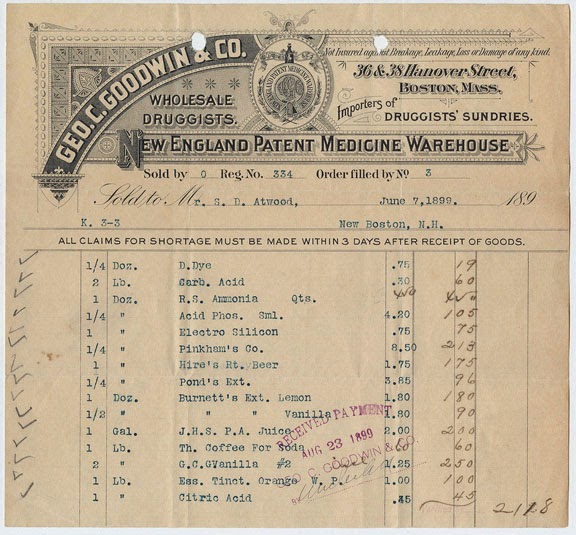 GEO. C. GOODWIN & CO.
Not Insured against Breakage, Leakage, Loss or Damage of any kind.
36 & 38 Hanover Street,
BOSTON, MASS.
WHOLESALE
DRUGGISTS.
Importers of
DRUGGISTS' SUNDRIES.
NEW ENGLAND PATENT MEDICINE WAREHOUSE
Sold by 0 Reg. No. 334 Order filled by No 3
Sold to Mr. S. D. Atwood, June 7,1899. 189
K. 3-3 New Boston, N.H.
ALL CLAIMS FOR SHORTAGE MUST BE MADE WITHIN 3 DAYS AFTER RECEIPT OF GOODS.
1/4 Doz. D.Dye .75 19
2 Lb. Carb. Acid .30 60
1 Doz. R.S. Ammonia Qts. 450 450
1/4 " Acid Phos. Sml. 4.20 105
1 " Electro Silicon .75 75
1/4 " Pinkham's Co. 8.50 213
1 " Hire's Rt. Beer 1.75 175
1/4 " Pond's Ext. 3.85 96
1 Doz. Burnett's Ext. Lemon 1.80 180
1/2 " " " Vanilla 1.80 90
1 Gal. J.H.S. P.A. Juice 2.00 200
1 Lb. Th. Coffee For Soda 60
2 " G.C.GVanilla #2 1.25 250
1 Lb. Ess. Tinct. Orange W. P. 1.00 100
1 " Citric Acid .45 45
2118
RECEIVED PAYMENT
AUG 23 1899
GEO. C. GOODWIN & CO.
BY